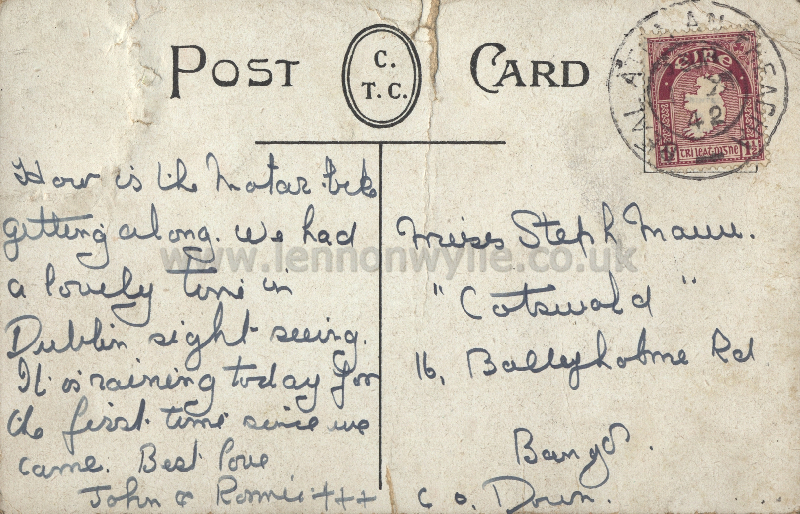 POST CARD
C.
T.C.
EIRE
42
How is the Motar bike
getting along. We had
a lovely time in
Dublin sight seeing.
It is raining today for
the first time since we
came. Best love
John & Romie +++
Miss Steph Maw.
"Cotswold"
16, Ballyholme Rd
Bangor.
Co. Down.
www.lennonwylie.co.uk